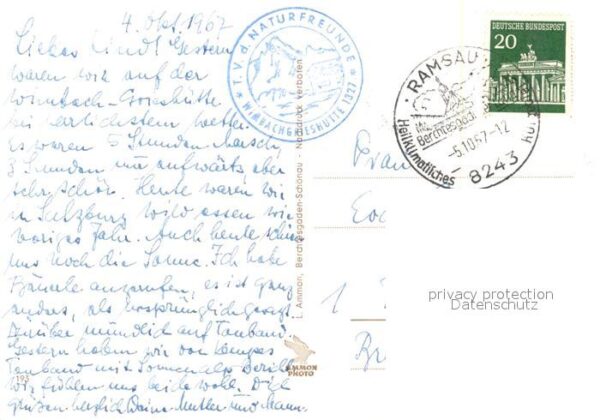 4. Okt. 1967
Liebes Kind! Gestern
waren wir auf der
Wimbach-Grieshütte
bei herrlichstem Wetter.
Es waren 5 Stunden Marsch,
3 Stunden nur aufwärts, aber
sehr schön. Heute waren wir
in Salzburg Wild essen wie
voriges Jahr. Auch heute schien
uns noch die Sonne. Ich habe
anzurufen, es ist ganz
anders, als ursprünglich gesagt.
Darüber mündlich auf Tonband
Gestern haben wir von
Tonband mit
Wir fühlen uns beide wohl. Dich
grüßen herzlich Deine Mutter und Mann.
T. V. d. NATURFREUNDE
WIMBACHGRIESHÜTTE 1327
L. Ammon, Berchtesgaden-Schönau · Nachdruck verboten
AMMON
PHOTO
195
DEUTSCHE BUNDESPOST
20
RAMSAU
Berchtesgaden
-5.10.67-12
Heilklimatisches
8243
Frau
1
privacy protection
Datenschutz